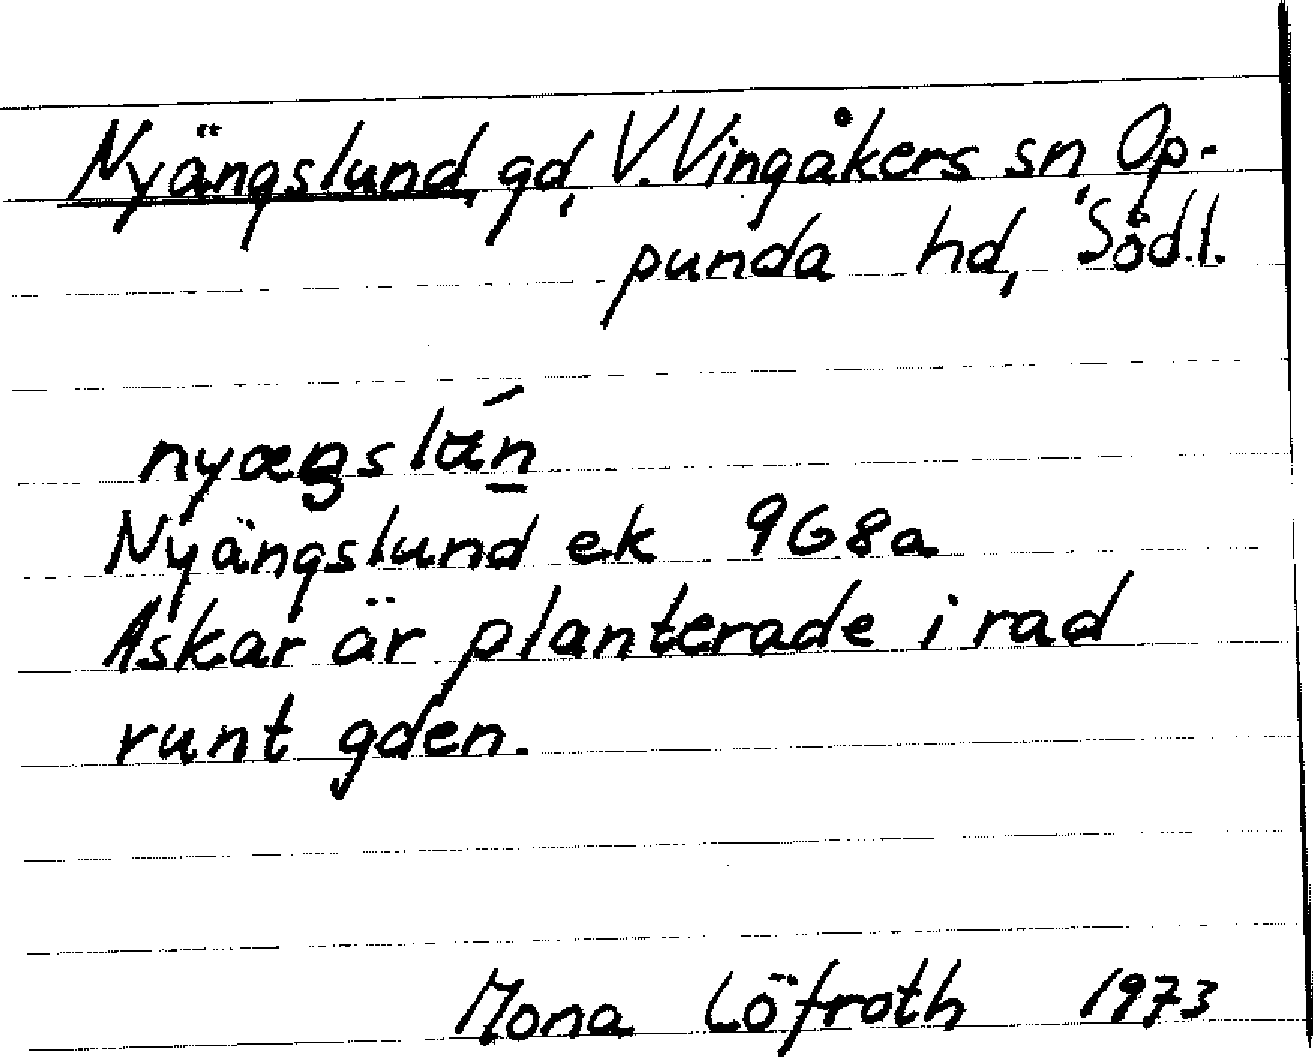 Nyängslund, gd, V. Vingåkers sn, Op-
punda hd, Södl.
Nyängslund ek 9G8a
Askar är planterade i rad
runt gden.
Mona Löfroth 1973